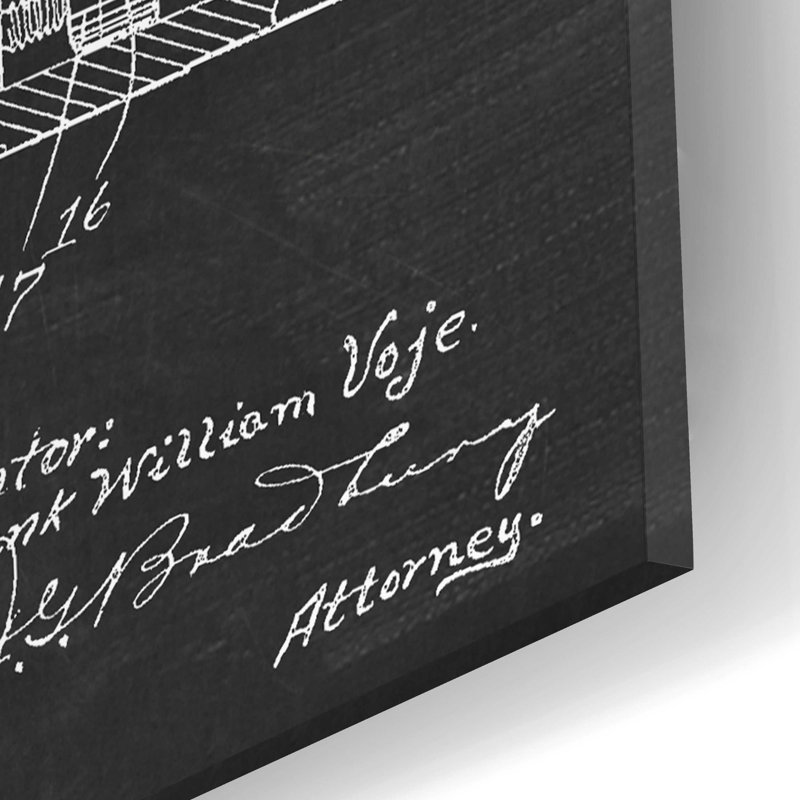 16
17
ntor:
nk William Voje.
G. Bradbury
Attorney.